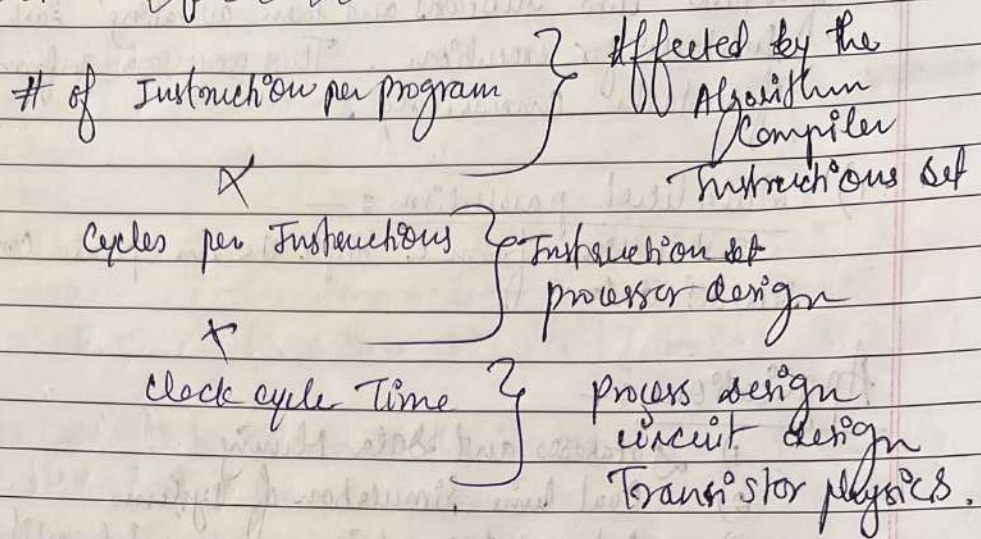 # of Instruction per program } Affected by the
Algorithm
Compiler
Instructions set
×
Cycles per Instructions } Instruction set
processor design
×
Clock cycle Time } Process design
circuit design
Transistor physics.